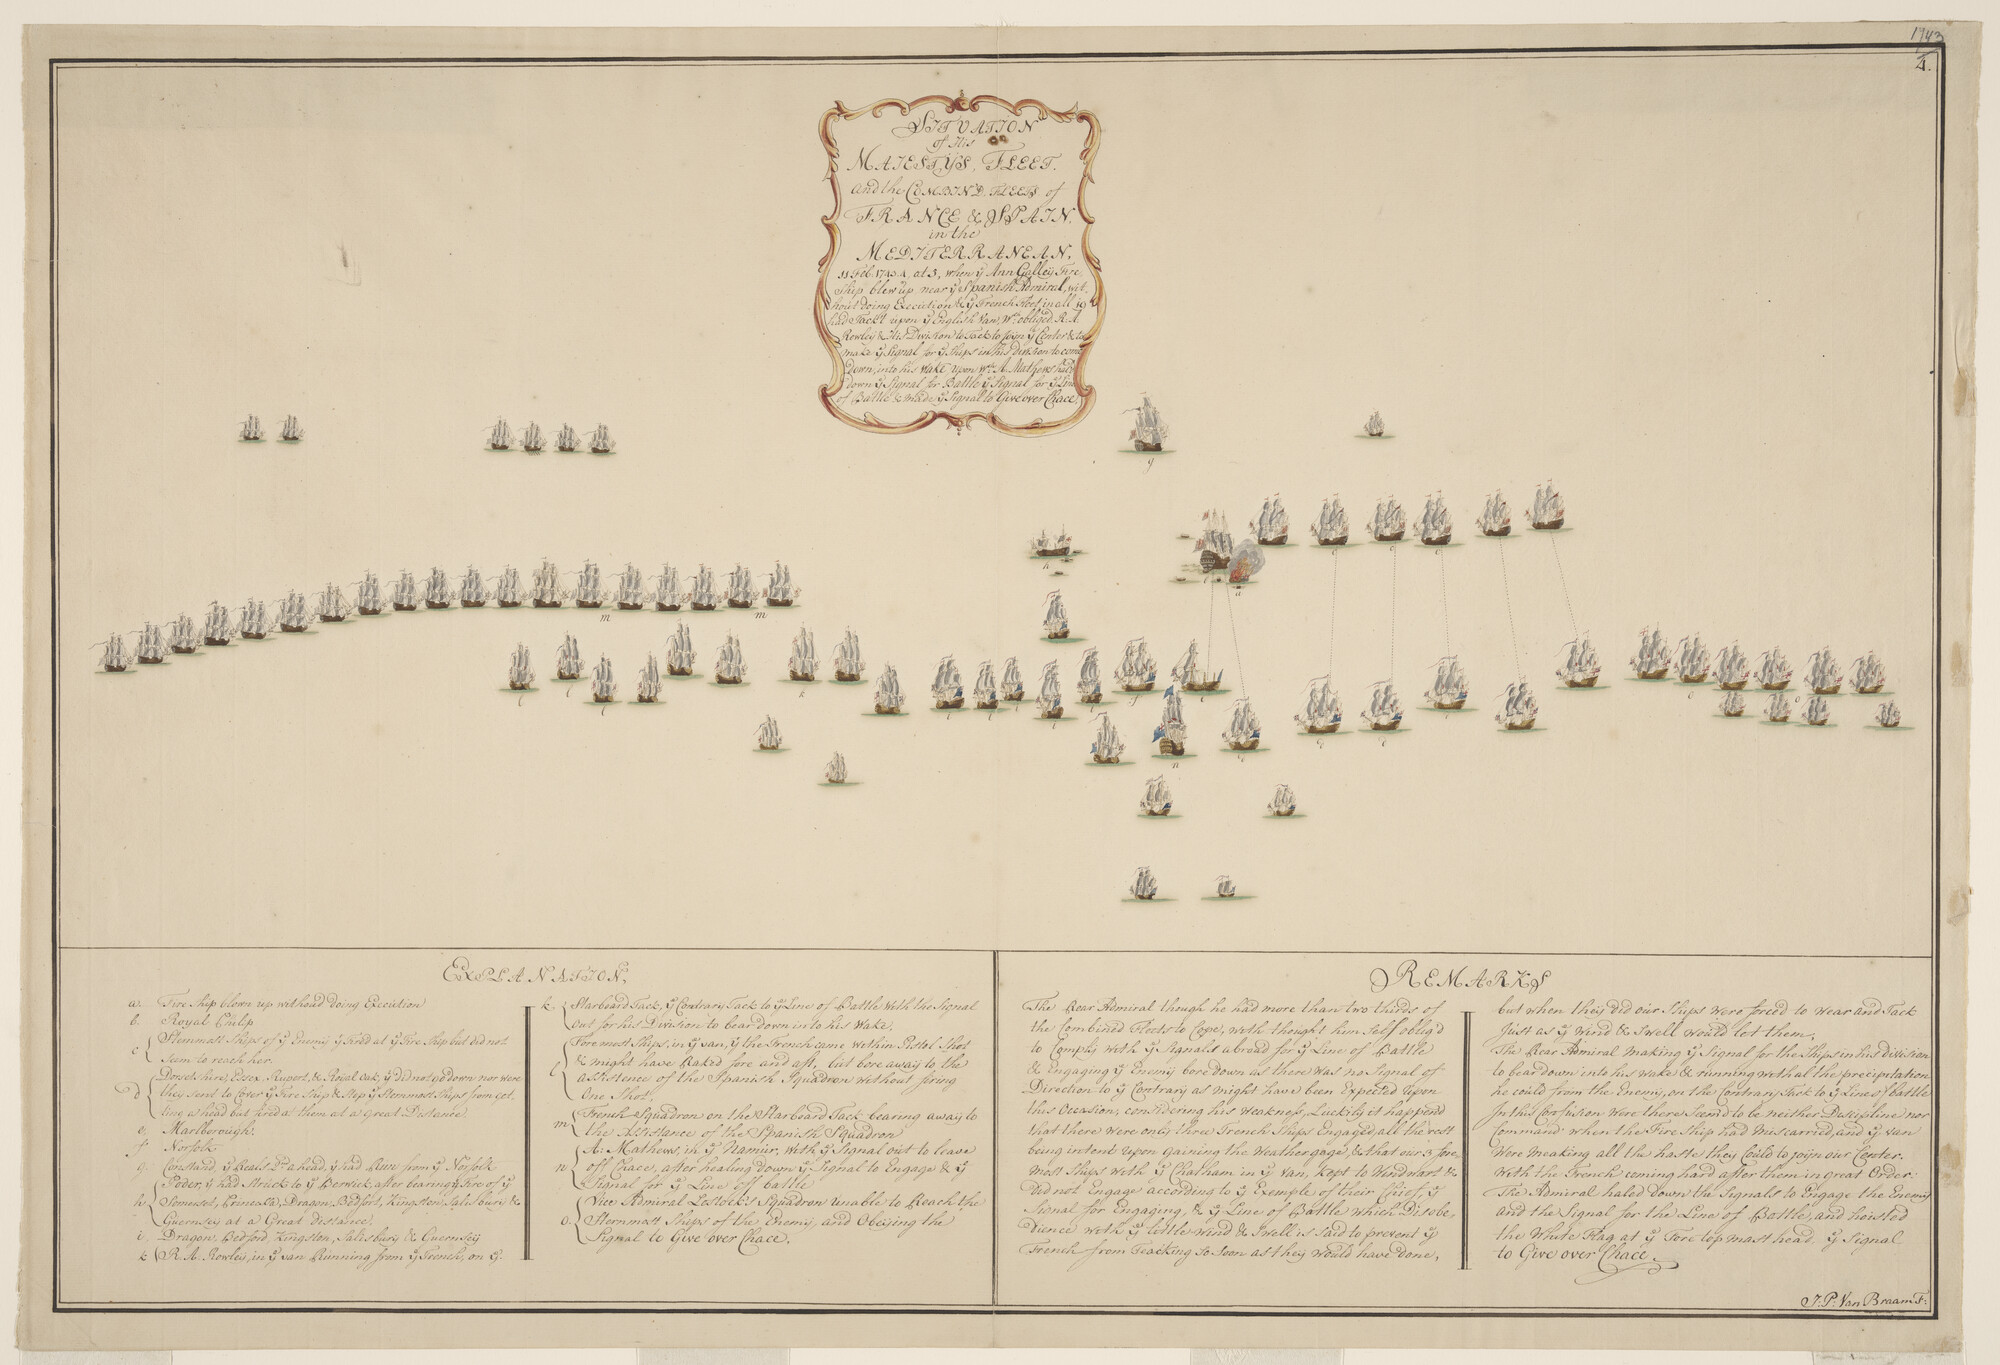 1743
4.
SITUATION
of His
MAJESTYS, FLEET.
and the COMBIN'D, FLEETS of
FRANCE & SPAIN.
in the
MEDITERRANEAN,
11 Feb. 1743.4, at 3, when ÿ Ann Galley Fire
Ship blew up near ÿ Spanish Admiral, wit
hout doing Execution & ÿ French Fleet, in all 19
had Tack't upon ÿ English Van, Wch. obliged, R. A.
Rowley & His Division to Tack to Joÿn ÿ Center & to
make ÿ Signal for ÿ Ships in his Division to come
Down, into his Wake, upon Wch. A. Mathews hal'd
down ÿ Signal for Battle ÿ Signal for ÿ Line
of Battle & made ÿ Signal to Give over Chace.
g
h
a
m
m
k
n
EXPLANATION,
a. Fire Ship blown up without doing Execution
b. Royal Philip
c Stemmost Ships of ÿ Enemy ÿ Fir'd at ÿ Fire Ship but did not
Seem to reach her.
d Dorsetshire, Essex, Rupert, & Roÿal Oak, ÿ did not go down nor were
they sent to Cover ÿ Fire Ship & Stop ÿ Stemmost Ships from get,
ting a head but fired at them at a Great Distance
e. Marlborough.
f Norfolk
g. Constand, ÿ Reals Sd. a head, ÿ had Runn from ÿ Norfolk
h Poder, ÿ had Struck to ÿ Berwick, after bearing ÿ Fire of ÿ
Somerset, Princessa, Dragon, Bedfort, Kingston, Salisbury &
Guernsey at a Great distance.
i. Dragon, Bedford, Kingston, Salisbury & Guernsey
k R. A. Rowley, in ÿ van Running from ÿ French, on ÿ.
k Starboard Tack, ÿ Contrary Tack to ÿ Line of Battle with the Signal
out for his Division to bear down into his Wake.
l Foremost Ships, in ÿ van, ÿ the French came within Pistol Shot
& might have Raked fore and aft, but bore away to the
assistence of the Spanish Squadron without firing
One Shot.
m French Squadron on the Starboard Tack bearing away to
the Assistance of the Spanish Squadron
n A. Mathews, in ÿ Namur, with ÿ Signal out to leave
off Chace, after healing down ÿ Signal to Engage & ÿ
Signal for ÿ Line off battle
o. Vice Admirel Lestock's Squadron unable to Reach the
Sternmost Ships of the Enemy, and Obeÿing the
Signal to Give over Chace.
REMARKS
The Rear Admiral though he had more than two thirds of
the Combined Fleets to Cope, with thought him Self oblig'd
to Complÿ with ÿ Signals abroad for ÿ Line of Battle
& Engaging ÿ Enemy bore down as there was no Signal of
Direction to ÿ Contrary as might have been Expected upon
this Occasion, considering his weakness, Luckily it happend
that there were only three French Ships Engaged, all the rest
being intent upon gaining the Weather gage, & that our 3 fore
most Ships with ÿ Chatham in ÿ Van, kept to Windward &
did not Engage according to ÿ Exemple of their Chief, ÿ
Signal for Engaging, & ÿ Line of Battle which Disobe,
dience with ÿ little Wind & Swell is Said to prevent ÿ
French from Teacking So Soon as they would have done,
but when theÿ did our Ships were forced to wear and Tack
Just as ÿ Wind & Swell would let them.
The Rear Admiral making ÿ Signal for the Ships in his division
to bear down into his Wake & running with al the precipitation
he could from the Enemy, on the Contrary Tack to ÿ Line of battle
In this Confusion were there Seem'd to be neither Discipline nor
Command. when the Fire Ship had miscarried, and ÿ van
Were meaking all the haste they Could to joÿn our Center.
With the French coming hard after them in great Order.
The Admiral haled down the Signals to Engage the Enemy
and the Signal for the Line of Battle, and hoisted
the White Flag at ÿ Fore top mast head. ÿ Signal
to Give over Chace.
J. P. Van Braam F: